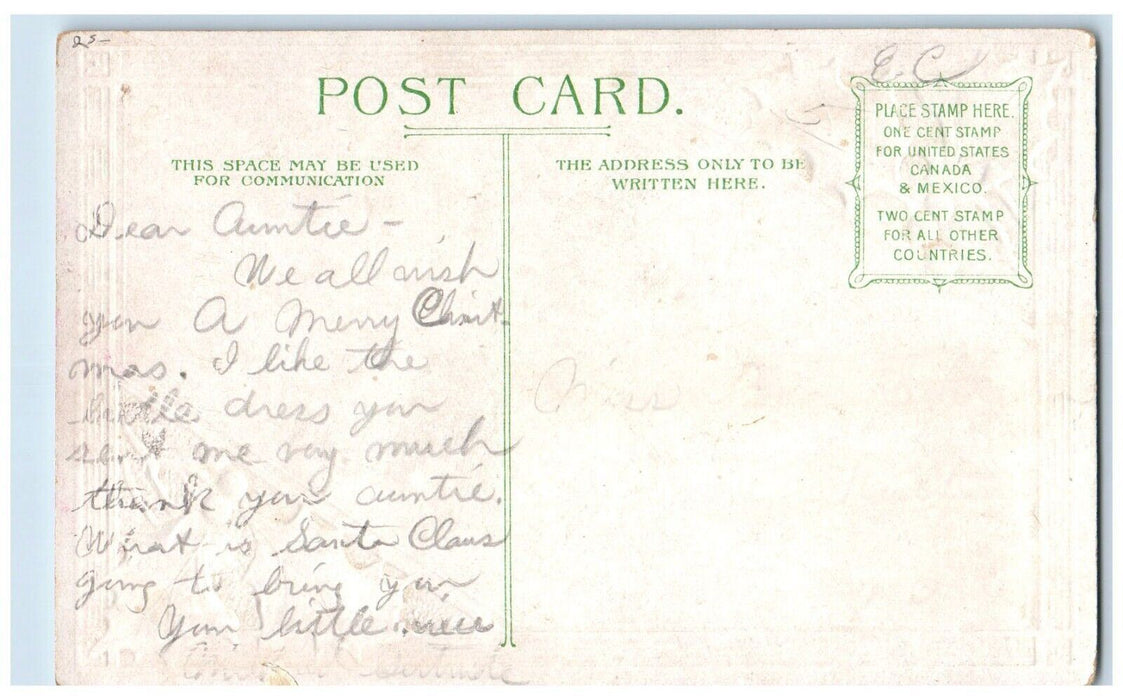 25-
E.C.
POST CARD.
THIS SPACE MAY BE USED
FOR COMMUNICATION
THE ADDRESS ONLY TO BE
WRITTEN HERE.
PLACE STAMP HERE.
ONE CENT STAMP
FOR UNITED STATES
CANADA
& MEXICO.
TWO CENT STAMP
FOR ALL OTHER
COUNTRIES.
Dear Auntie -
We all wish
you A Merry Christ-
mas. I like the
little dress you
sent me very much
thank you auntie.
What is Santa Claus
going to bring you.
Your little niece
Gertrude
Miss